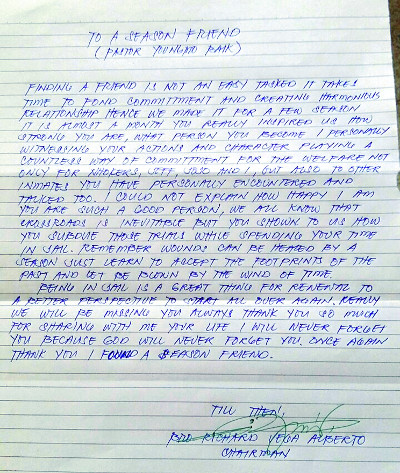 TO A SEASON FRIEND
(PASTOR YOUNGJO PAIK)
FINDING A FRIEND IS NOT AN EASY TASKED IT TAKES
TIME TO FOND COMMITMENT AND CREATING HARMONIOUS
RELATIONSHIP HENCE WE MADE IT FOR A FEW SEASON
IT IS ALMOST A MONTH YOU REALLY INSPIRED US HOW
STRONG YOU ARE, WHAT PERSON YOU BECOME I PERSONALLY
WITNESSING YOUR ACTIONS AND CHARACTER PLAYING A
COUNTLESS WAY OF COMMITMENT FOR THE WELFARE NOT
ONLY FOR JEFF, AND I, BUT ALSO TO OTHER
INMATES YOU HAVE PERSONALLY ENCOUNTERED AND
TALKED TOO. I COULD NOT EXPLAIN HOW HAPPY I AM
YOU ARE SUCH A GOOD PERSON, WE ALL KNOW THAT
CROSSROADS IS INEVITABLE BUT YOU SHOWN TO US HOW
YOU SUBDUE THOSE TRIALS WHILE SPENDING YOUR TIME
IN JAIL. REMEMBER WOUNDS CAN BE HEALED BY A
SEASON JUST LEARN TO ACCEPT THE FOOTPRINTS OF THE
PAST AND LET BE BLOWN BY THE WIND OF TIME.
BEING IN JAIL IS A GREAT THING FOR RENEWAL TO
A BETTER PERSPECTIVE TO START ALL OVER AGAIN. REALLY
WE WILL BE MISSING YOU ALWAYS THANK YOU SO MUCH
FOR SHARING WITH ME YOUR LIFE I WILL NEVER FORGET
YOU BECAUSE GOD WILL NEVER FORGET YOU. ONCE AGAIN
THANK YOU I FOUND A SEASON FRIEND.
TILL THEN,
RICHARD VEGA ALBERTO
CHAIRMAN